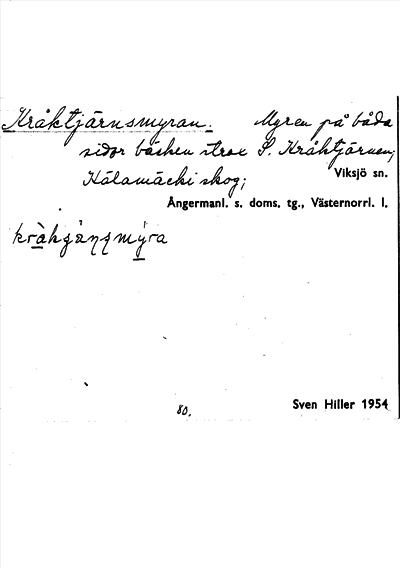 Kråktjärnsmyran. Myren på båda
sidor bäcken strax S. Kråktjärnen;
Kälamäcki skog; Viksjö sn.
Ångermanl. s. doms. tg., Västernorrl. l.
80.
Sven Hiller 1954